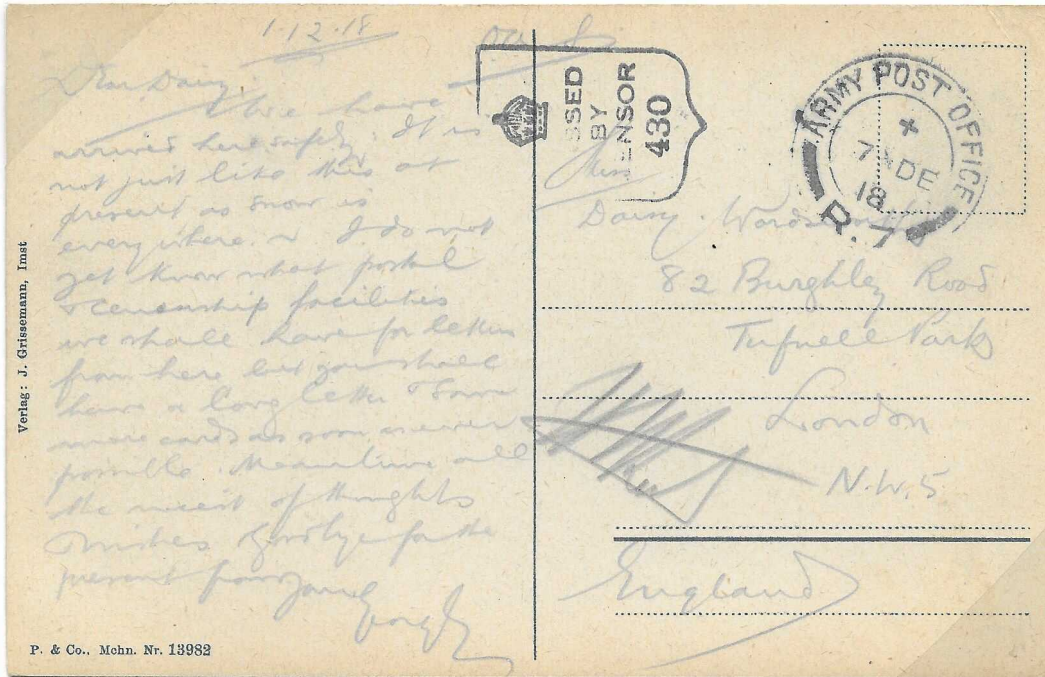 1.12.18
Dear Daisy
We have
arrived here safely. It is
not just like this at
present as snow is
everywhere. I do not
yet know what postal
& censorship facilities
we shall have for letters
from here but you shall
have a long letter & some
more cards as soon as ever
possible. Meantime all
the nicest of thoughts
& wishes & goodbye for the
present from yours
Verlag: J. Grissemann, Imst
P. & Co., Mchn. Nr. 13982
SSED
BY
ENSOR
430
ARMY POST OFFICE
7 DE
18
R.7
Miss
Daisy Wordsworth
82 Burghley Road
Tufnell Park
London
N.W.5
England